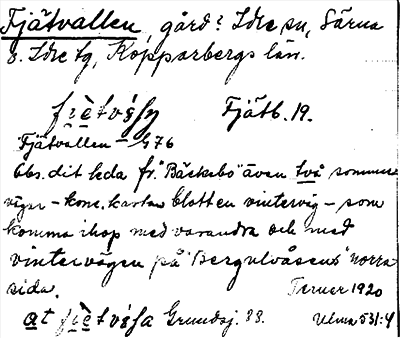 Fjätvallen, gård? Idre sn, Särna
o. Idre tg, Kopparbergs län.
fiètvása Fjätb. 19.
Fjätvallen – G76
Obs. dit leda fr. "Bäckebo" även två sommar
vägar – konc. kartan blott en vinterväg – som
komma ihop med varandra och med
vintervägen på "Bergulvåsens" norra
sida. Terner 1920
at fiètvása Grundsj. 88. Ulma 531:4